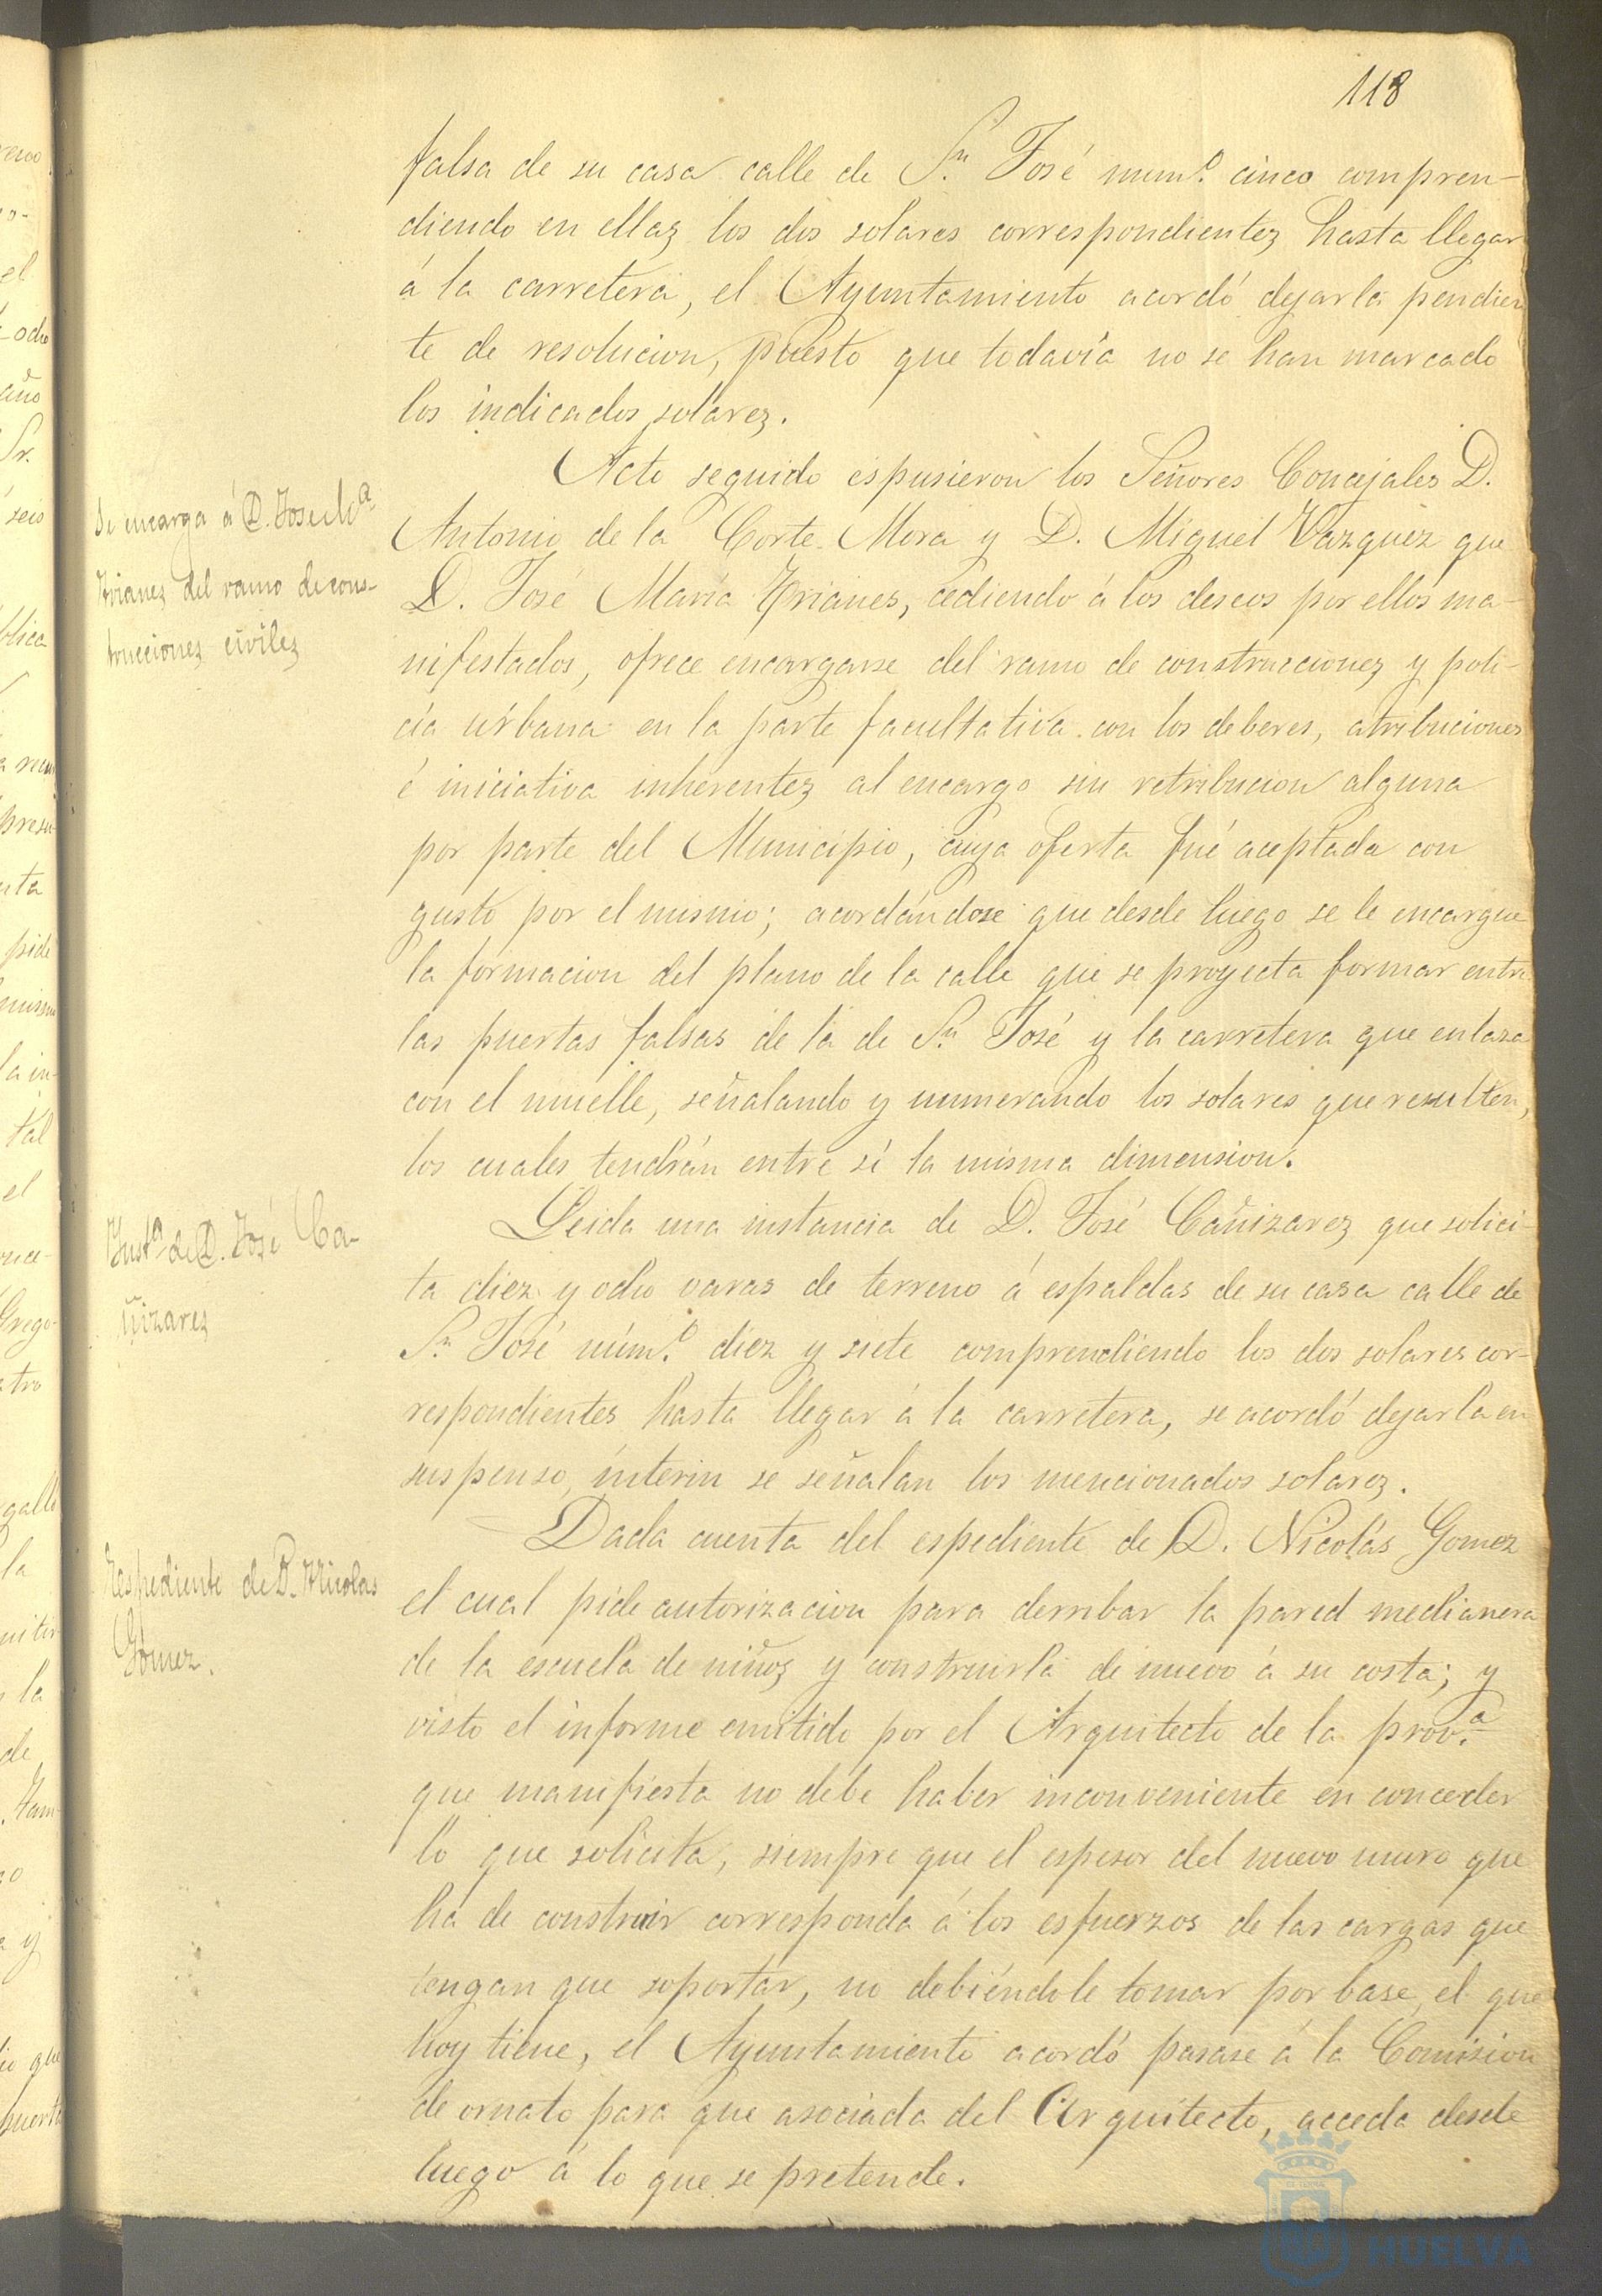 118
falsa de su casa calle de Sn. José numº. cinco compren-
diendo en ellaz los dos solares correspondientez hasta llegar
á la carretera, el Ayuntamiento acordó dejarla pendien
te de resolucion, puesto que todavía no se han marcado
los indicados solarez.
Se encarga á D. Jose Mª.
Trianez del ramo de cons-
trucciones civilez
Acto seguido espusieron los Señores Concejales D.
Antonio de la Corte Mora y D. Miguel Vazquez que
D. José María Trianes, cediendo á los deseos por ellos ma-
nifestados, ofrece encargarse del ramo de construccionez y poli-
cía urbana en la parte facultativa con los deberes, atribuciones
é iniciativa inherentez al encargo sin retribucion alguna
por parte del Municipio, cuya oferta fué aceptada con
gusto por el mismo; acordándose que desde luego se le encargue
la formacion del plano de la calle que se proyecta formar entre
las puertas falsas de la de Sn. José y la carretera que enlaza
con el muelle, señalando y numerando los solares que resulten,
los cuales tendrán entre sí la misma dimension.
Instª. de D. José Ca-
ñizarez
Leida una instancia de D. José Cañizarez que solici-
ta diez y ocho varas de terreno á espaldas de su casa calle de
Sn. José númº. diez y siete comprendiendo los dos solares cor-
respondientes hasta llegar á la carretera, se acordó dejarla en
suspenso, ínterin se señalan los mencionados solarez.
Espediente de D. Nicolas
Gómez.
Dada cuenta del espediente de D. Nicolás Gomez
el cual pide autorizacion para derribar la pared medianera
de la escuela de niñoz y construirla de nuevo á su costa; y
visto el informe emitido por el Arquitecto de la provª.
que manifiesta no debe haber inconveniente en conceder
lo que solicita, siempre que el espesor del nuevo muro que
há de construir corresponda á los esfuerzos de las cargas que
tengan que soportar, no debiéndole tomar por base, el que
hoy tiene, el Ayuntamiento acordó pasase á la Comision
de ornato para que asociada del Arquitecto, acceda desde
luego á lo que se pretende.
HUELVA